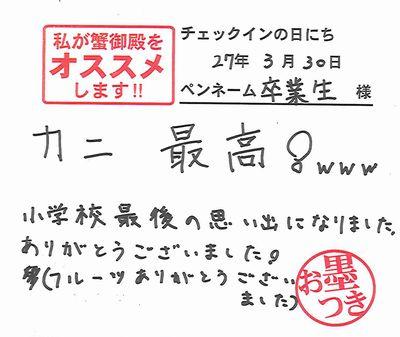 私が蟹御殿を
オススメ
します!!
チェックインの日にち
27年 3月 30日
ペンネーム 卒業生 様
カニ 最高!www
小学校最後の思い出になりました。
ありがとうございました!
(フルーツありがとうござい
ました)
お墨つき